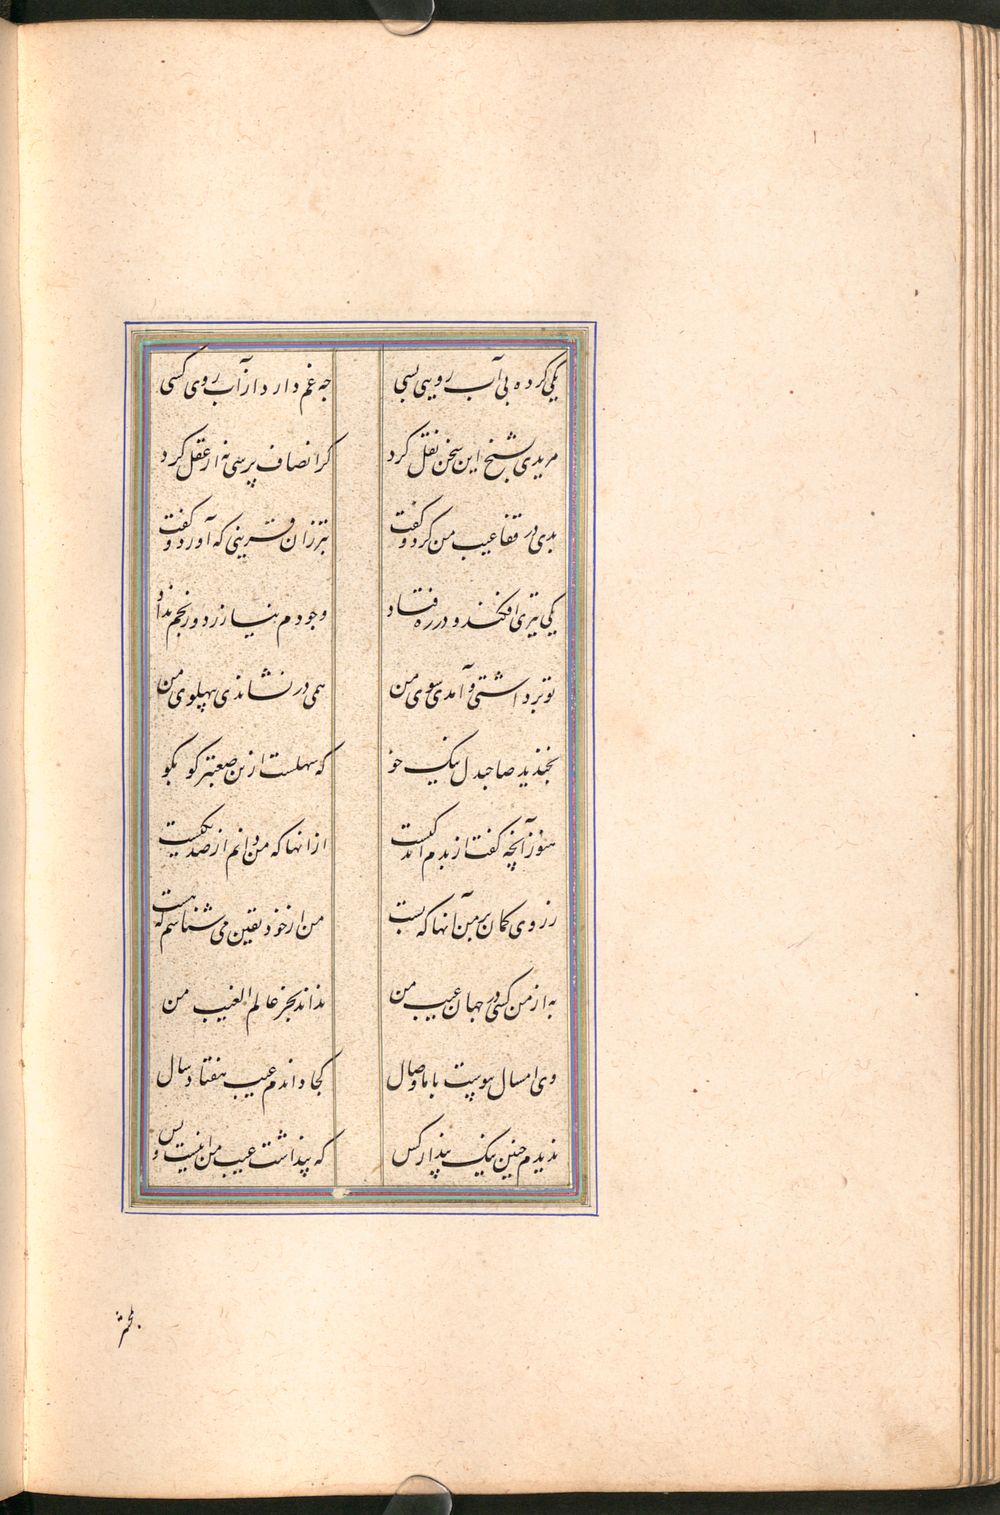 یکی کرده بی آب رویی بسی چه غم دارد از آب روی کسی
مریدی بشیخ این سخن نقل کرد کر انصاف پرسی نه از عقل کرد
بدی در قفا عیب من کرد و کفت بتر زان قرینی که آورد و کفت
یکی تیری افکند و در ره فتاد وجودم نیازرد و رنجم نداد
تو برداشتی و آمدی سوی من همی در نشاندی بپهلوی من
بخندید صاحبدل نیک خو که سهلست ازین صعبتر کو بکو
هنوز آنچه کفت از بدم اندکیست از انها که من دانم از صد یکیست
ز روی کمان بر من آنها که بست من از خود یقین می شناسم که هست
به از من کسی در جهان عیب من نداند بجز عالم الغیب من
وی امسال پیوست با ما وصال کجا داندم عیب هفتاد سال
ندیدم چنین نیک پندار کس که پنداشت عیب من اینست و بس
بمحشر